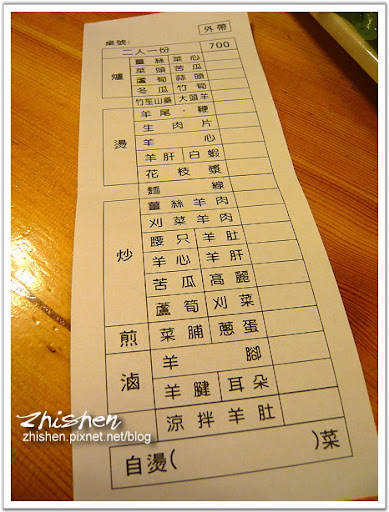 外帶
桌號:
二人一份 700
爐
薑絲 菜心
菜頭 苦瓜
蘆筍 蒜頭
冬瓜 竹筍
竹笙山藥 大頭羊
燙
羊尾、鞭
生肉片
羊心
羊肝 白蝦
花枝漿
麵線
炒
薑絲羊肉
刈菜羊肉
腰只 羊肚
羊心 羊肝
苦瓜 高麗
蘆筍 刈菜
煎
菜脯 蔥蛋
滷
羊腳
羊腱 耳朵
涼拌羊肚
自燙( )菜
Zhishen
zhishen.pixnet.net/blog